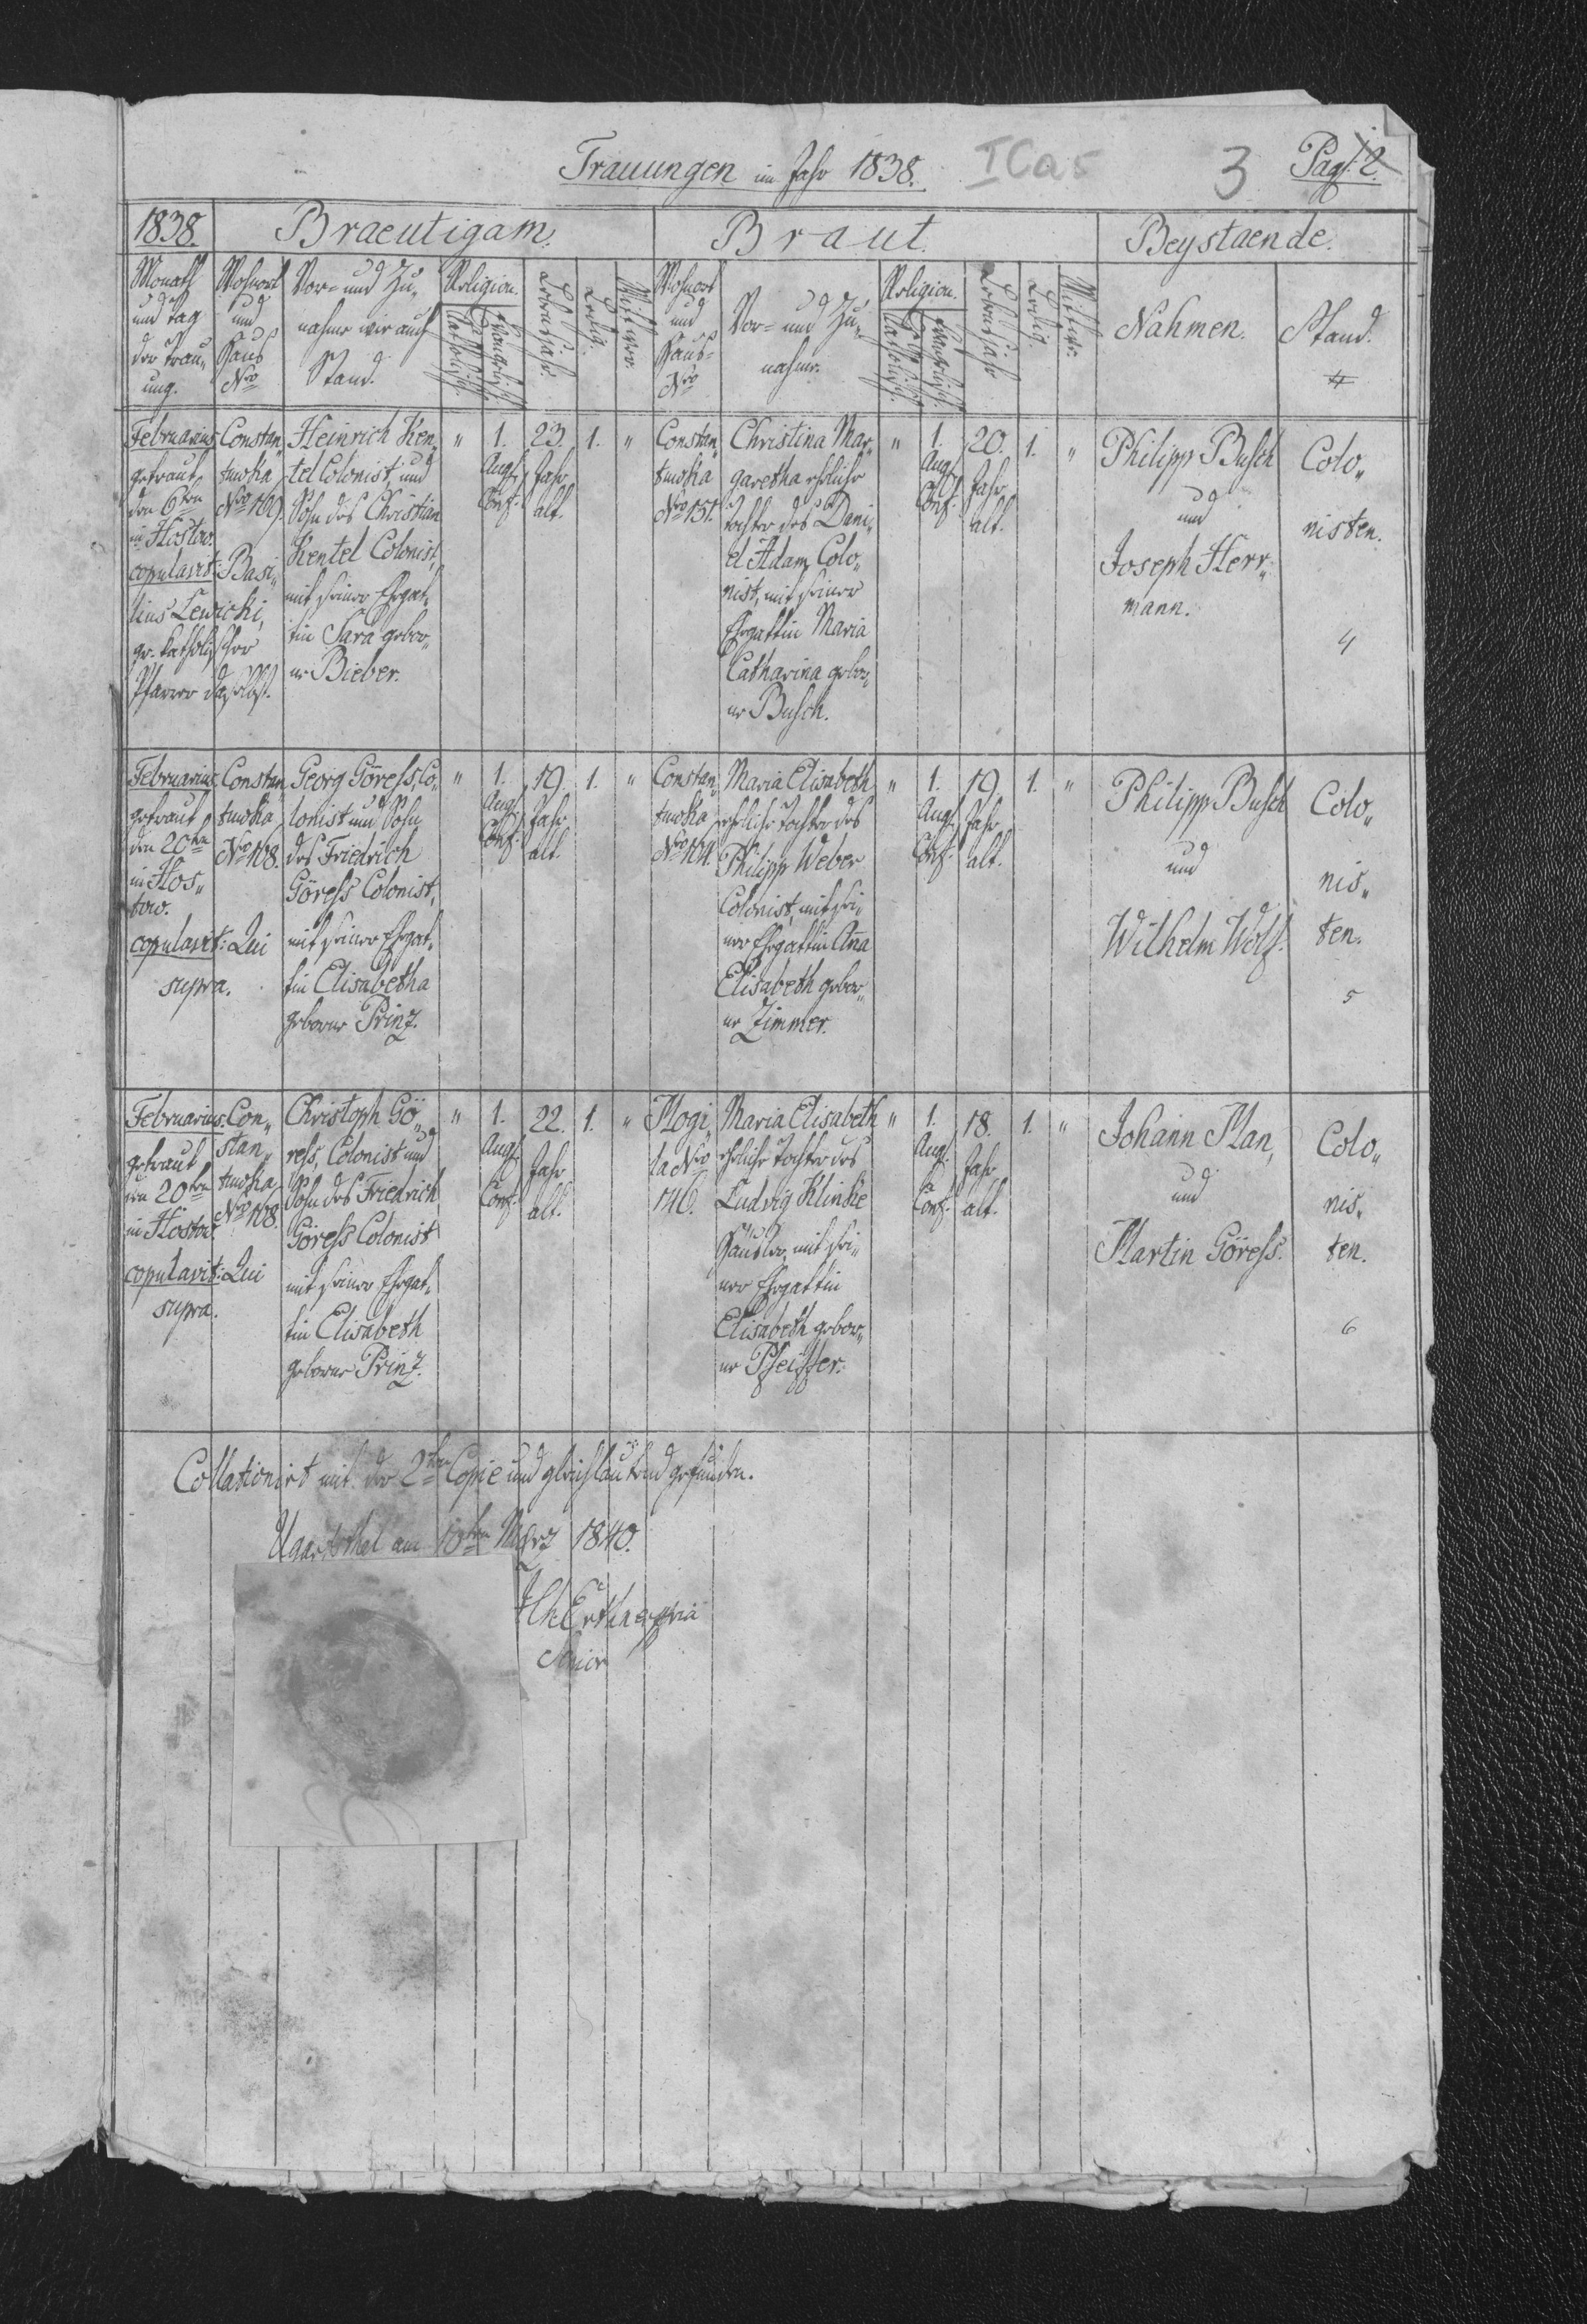 Trauungen im Jahr 1838.
ICa5
3
Pag. 2.
1838.
Braeutigam.
Braut.
Beystaende.
Monath
und Tag
der Trau„
ung.
Wohnort
und
Haus
Nro
Vor- und Zu„
nahme wie auch
Stand.
Religion.
Katholisch.
Evangelisch.
Lebensjahr
Ledig.
Wittwer.
Wohnort
und
Haus-
Nro
Vor- und Zu„
nahme.
Religion.
Katholisch.
Evangelisch.
Lebensjahr
Ledig.
Wittwe.
Nahmen.
Stand.
Februarius
getraut
den 6ten
in Hostow.
copulavit: Basi„
lius Lewicki,
gr. katholischer
Pfarrer daselbst.
Constan„
tinoka
Nro 169.
Heinrich Ken„
tel Colonist, und
Sohn des Christian
Kentel Colonist,
mit seiner Ehegat„
tin Sara gebor„
ne Bieber.
„
1.
Augs.
Conf.
23.
Jahr
alt.
1.
„
Constan„
tinoka
Nro 151.
Christina Mar„
garetha eheliche
Tochter des Dani„
el Adam Colo„
nist, mit seiner
Ehegattin Maria
Catharina gebor„
ne Busch.
„
1.
Augs.
Conf.
20.
Jahr
alt.
1.
„
Philipp Busch
und
Joseph Herr„
mann.
Colo„
nisten.
4
Februarius
getraut
den 20ten
in Hos„
tow.
copulavit: Qui
supra.
Constan„
tinoka
Nro 108.
Georg Göress, Co„
lonist und Sohn
des Friedrich
Göress Colonist,
mit seiner Ehegat„
tin Elisabetha
geborne Prinz.
„
1.
Augs.
Conf.
19.
Jahr
alt.
1.
„
Constan„
tinoka
Maria Elisabeth
eheliche Tochter des
Philipp Weber
Colonist, mit sei„
ner Ehegattin Anna
Elisabeth gebor„
ne Zimmer.
„
1.
Augs.
Conf.
19.
Jahr
alt.
1.
„
Philipp Busch
und
Wilhelm Wolf.
Colo„
nis„
ten.
5
Februarius
getraut
den 20ten
in Hostow.
copulavit: Qui
supra.
Con„
stan„
tinoka
Nro 108.
Christoph Gö„
ress, Colonist und
Sohn des Friedrich
Göress Colonist
mit seiner Ehegat„
tin Elisabeth
geborne Prinz.
„
1.
Augs.
Conf.
22.
Jahr
alt.
1.
„
Mogi„
la Nro
146.
Maria Elisabeth
eheliche Tochter des
Ludvig Klinke
Häusler, mit sei„
ner Ehegattin
Elisabeth gebor„
ne Pfeiffer.
„
1.
Augs.
Conf.
18.
Jahr
alt.
1.
„
Johann Man,
und
Martin Göress.
Colo„
nis„
ten.
6
Collationirt mit der 2ten Copie und gleichlautend gefunden.
Ugartsthal am 10ten März 1840.
Senior